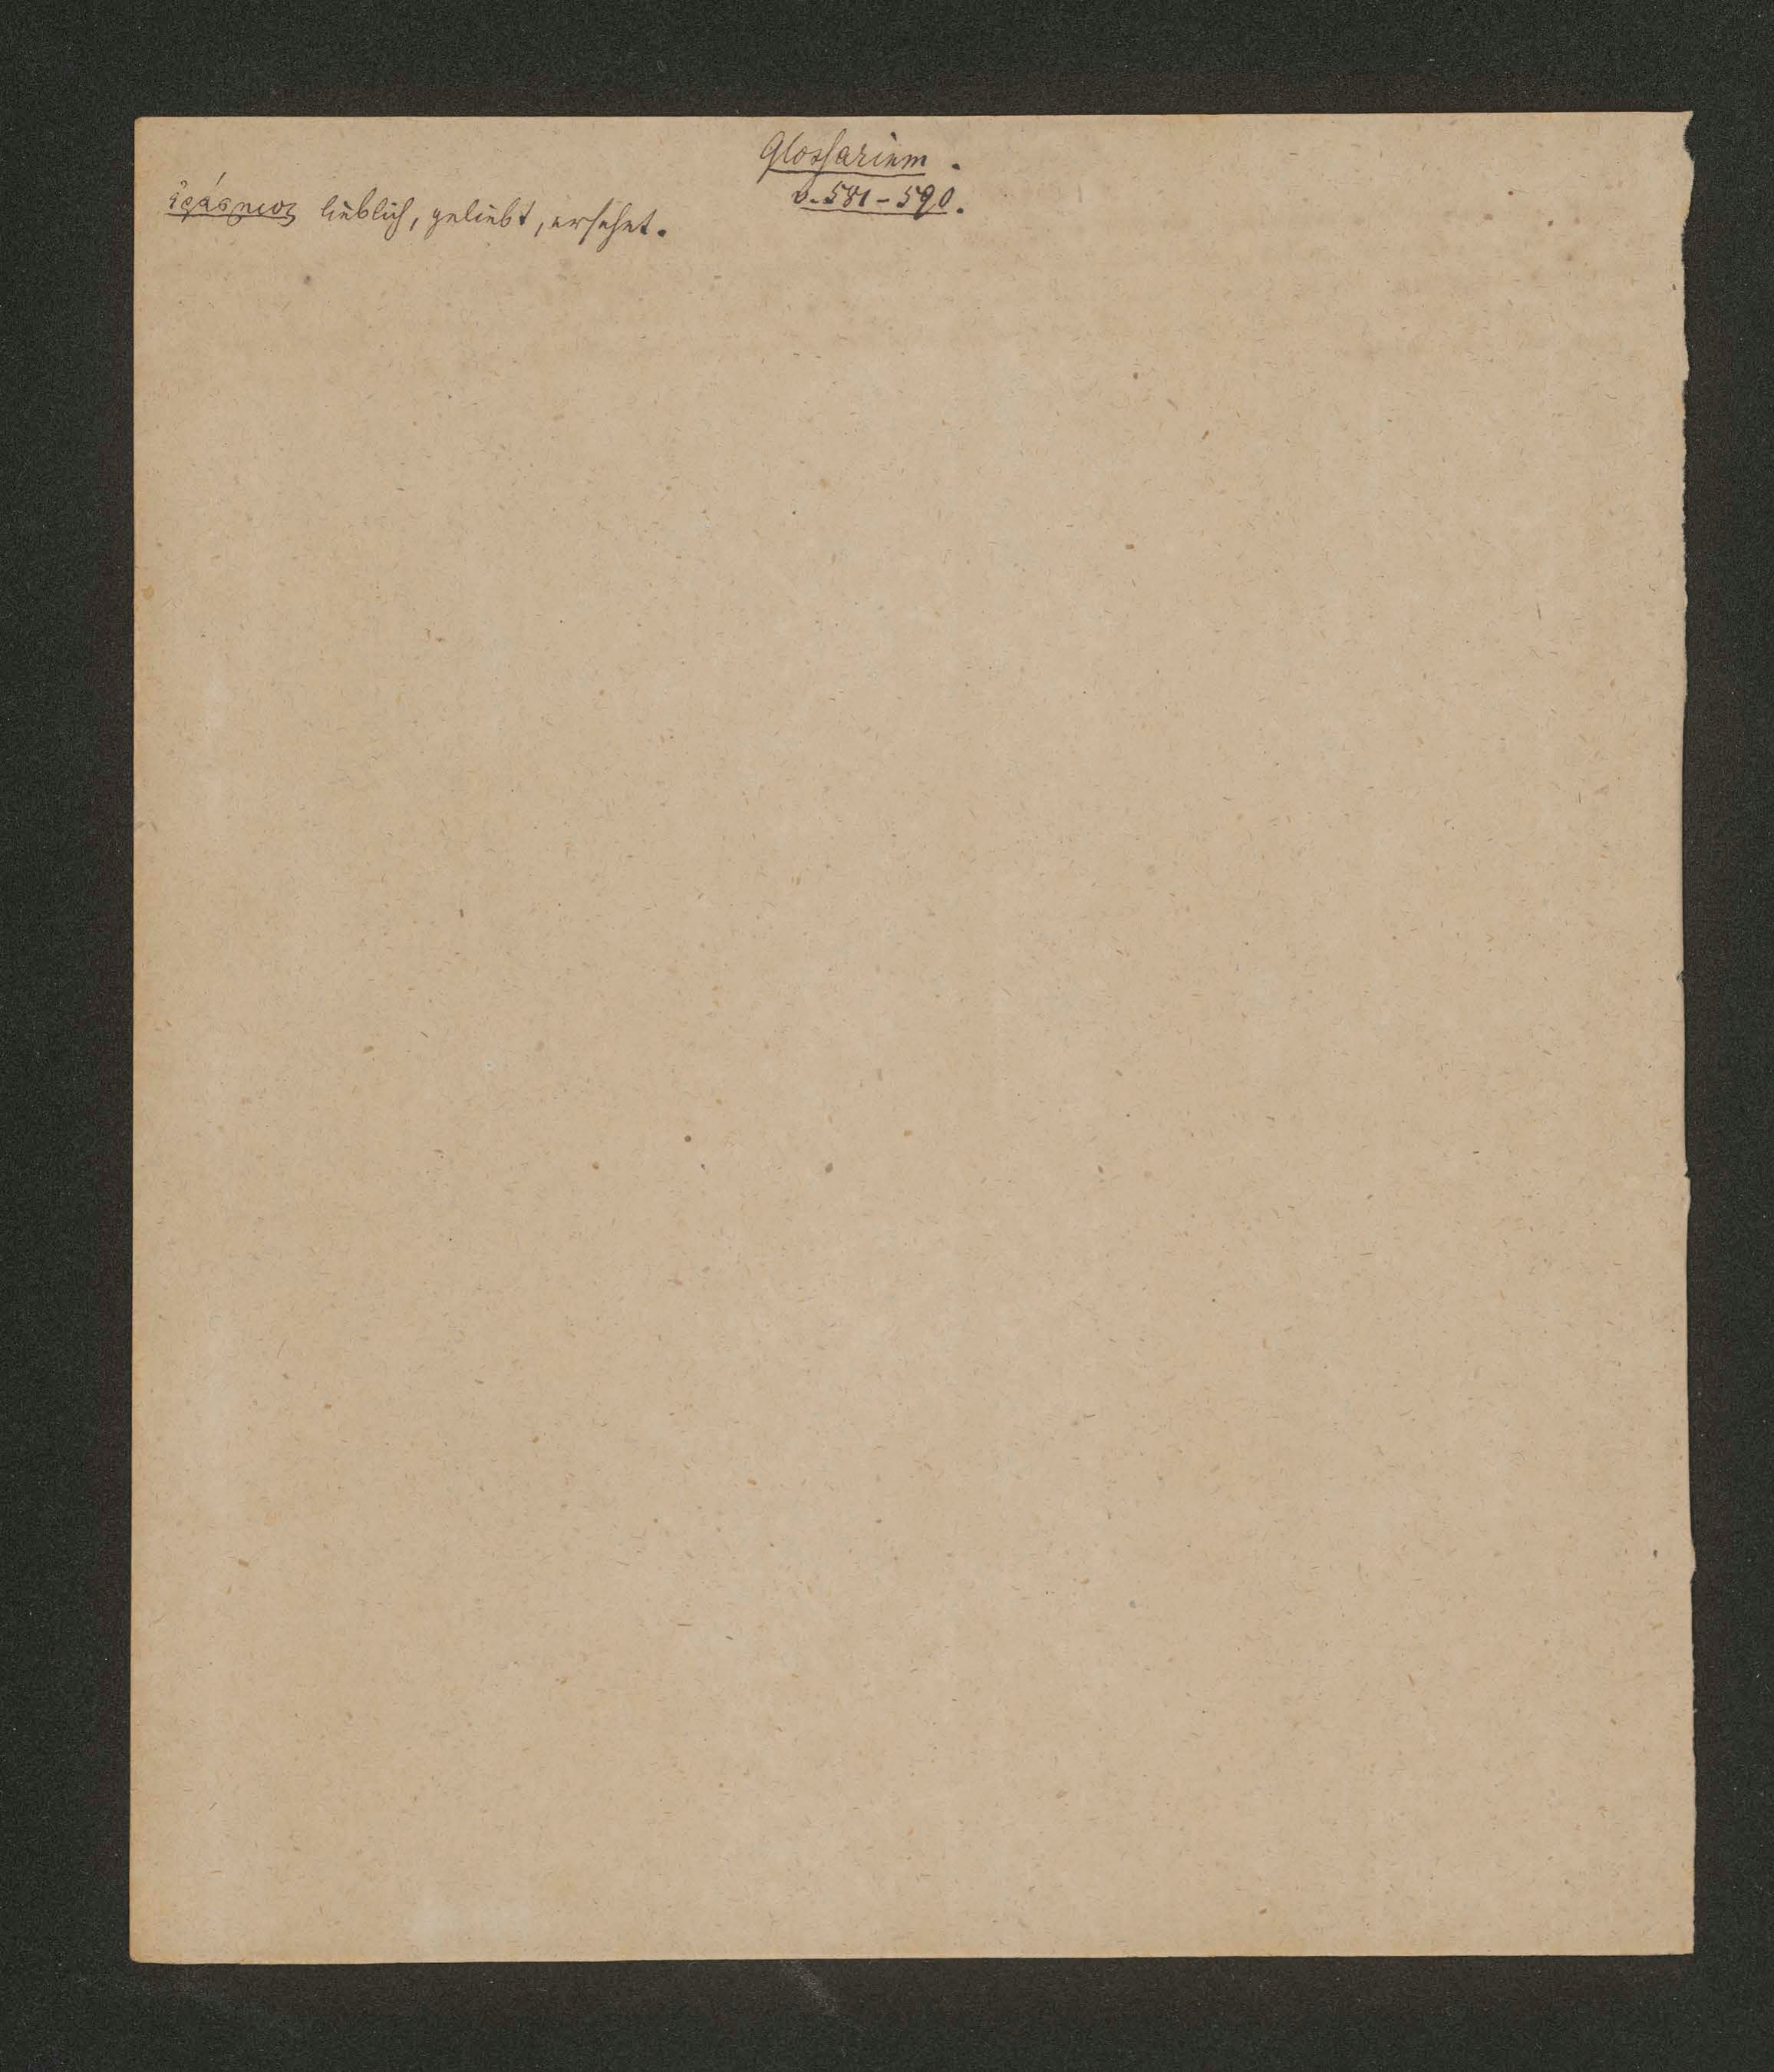 Glossarium.
v. 581 – 590.
ἐράσμιος lieblich, geliebt, ersehnt.